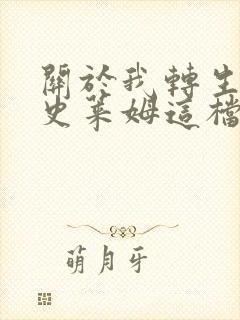 關於我轉生
史萊姆這檔
萌月牙